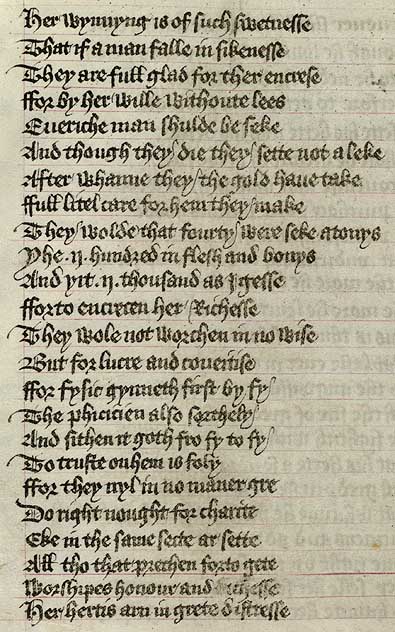 Her wynnyng is of such swetnesse
That if a man falle in sikenesse
They are full glad for ther encrese
ffor by her wille withoute lees
Eueriche man shulde be seke
And though they die they sette not a leke
After whanne they the gold haue take
ffull litel care for hem they make
They wolde that fourty were seke atonys
Yhe .ii. hundred in flesh and bonys
And yit .ii. thousand as I gesse
fforto encrecen her Richesse
They wole not worchen in no wise
But for lucre and coueitise
ffor fysic gynneth first by fy
The phicicien also sothely
And sithen it goth fro fy to fy
To truste on hem is foly
ffor they nyl in no maner gre
Do right nought for charite
Eke in the same secte ar sette
All tho that prechen forto gete
Worshipes honour and richesse
Her hertis arn in grete distresse